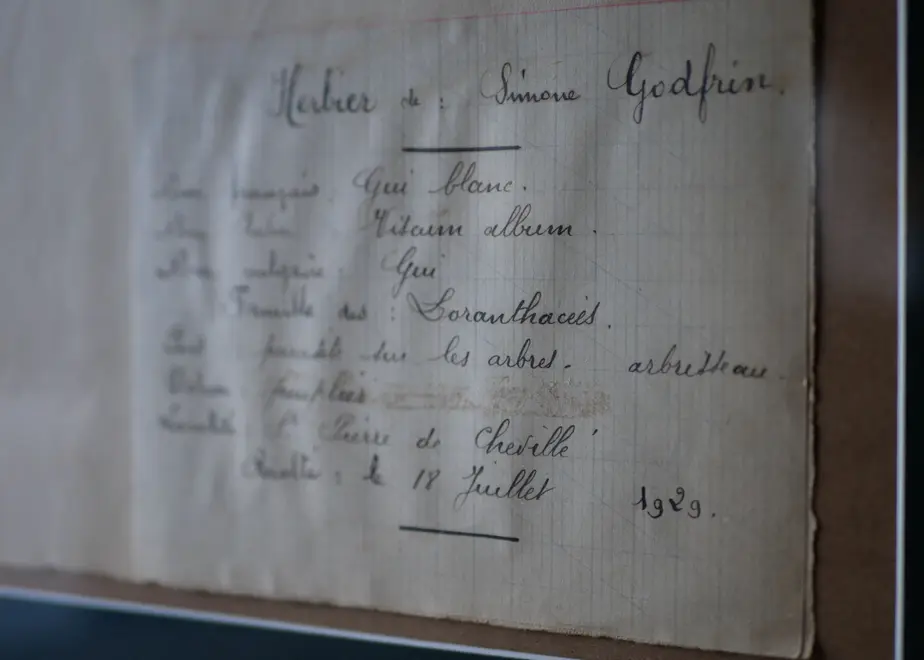 Herbier de : Simone Godfrin.
Nom français Gui blanc.
Nom latin Vitaum album.
Nom vulgaire : Gui
Famille des : Loranthacées.
parasite sur les arbres. arbrisseau
peuplier
Localité St Pierre de Chevillé
Récolté : le 18 Juillet 1929.